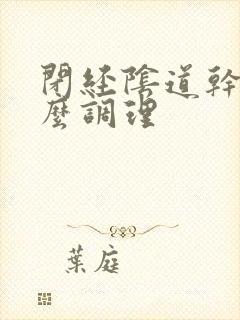 閉経陰道幹
麼調理
葉庭